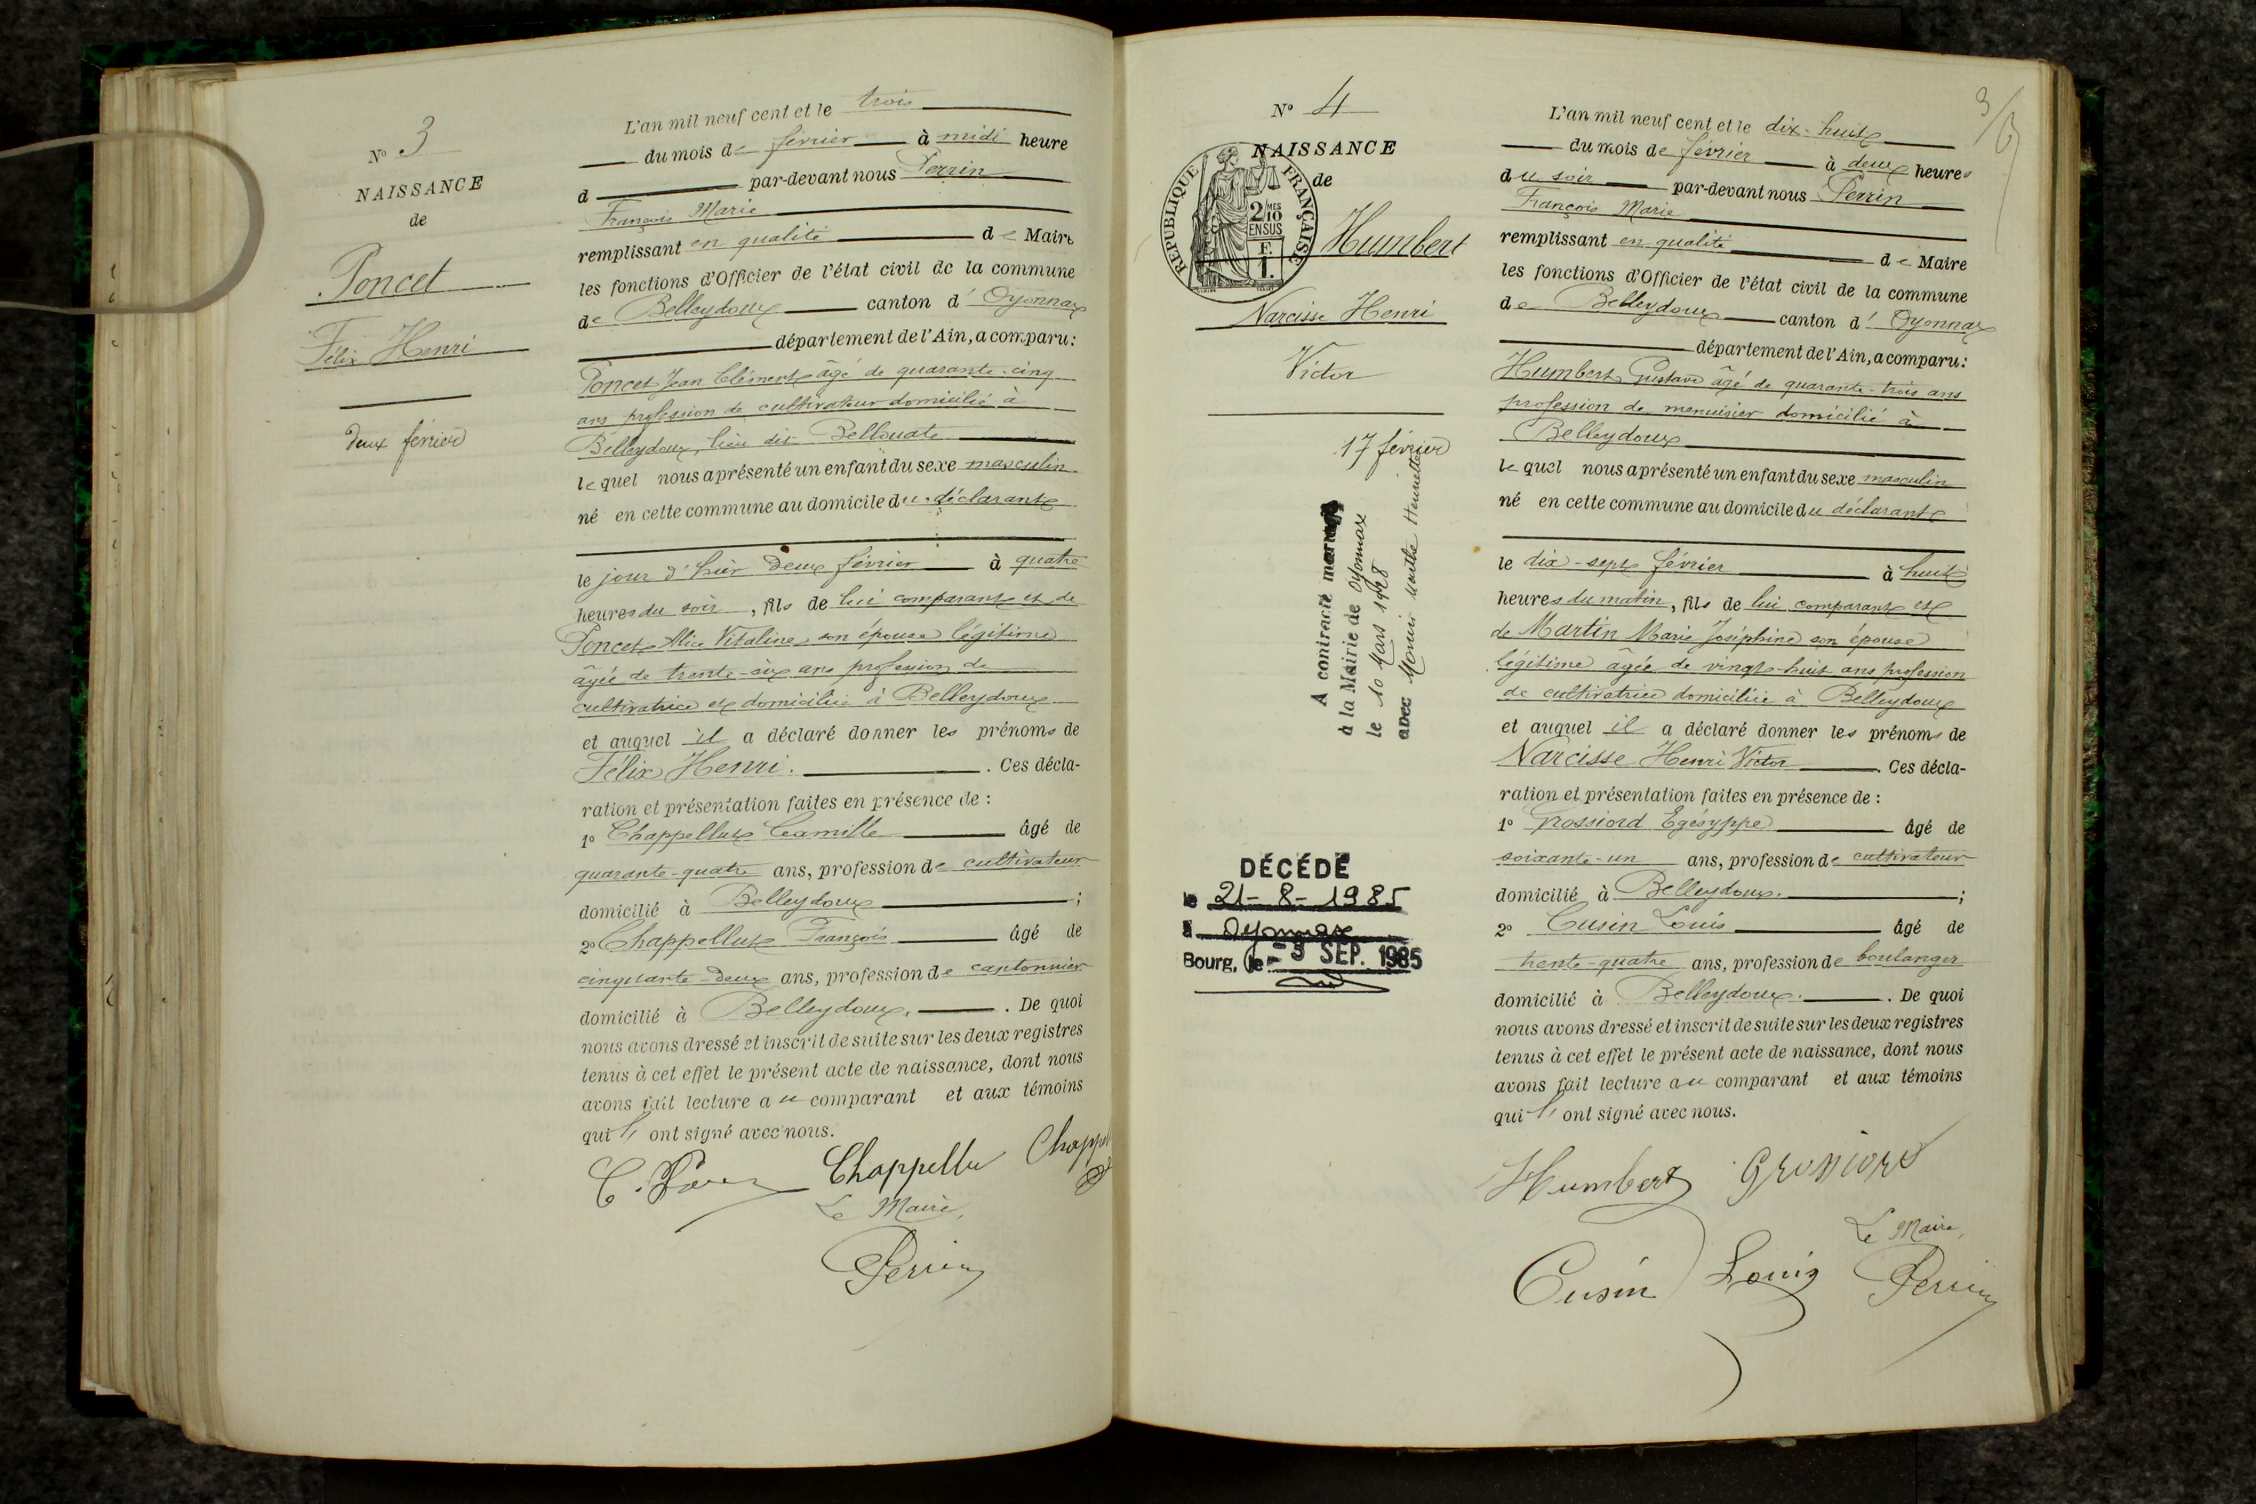 N° 3
NAISSANCE
de
Poncet
Félix Henri
deux février
L'an mil neuf cent et le trois
du mois de février à midi heure
d par-devant nous Perrin
François Marie
remplissant en qualité de Maire
les fonctions d'Officier de l'état civil de la commune
de Belleydoux canton d' Oyonnax
département de l'Ain, a comparu :
Poncet Jean Clément âgé de quarante-cinq
ans profession de cultivateur domicilié à
Belleydoux, lieu dit Bellouate
lequel nous a présenté un enfant du sexe masculin
né en cette commune au domicile du déclarant
le jour d'hier deux février à quatre
heures du soir, fils de lui comparant et de
Poncet Alice Vitaline son épouse légitime
âgée de trente-six ans profession de
cultivatrice et domiciliée à Belleydoux
et auquel il a déclaré donner les prénoms de
Félix Henri. Ces décla-
ration et présentation faites en présence de :
1° Chappellux Camille âgé de
quarante-quatre ans, profession de cultivateur
domicilié à Belleydoux ;
2° Chappellux François âgé de
cinquante-deux ans, profession de cantonnier
domicilié à Belleydoux. De quoi
nous avons dressé et inscrit de suite sur les deux registres
tenus à cet effet le présent acte de naissance, dont nous
avons fait lecture au comparant et aux témoins
qui l' ont signé avec nous.
Chappellu
Le Maire,
Perrin
3/
N° 4
NAISSANCE
de
RÉPUBLIQUE FRANÇAISE
2/10 MES
EN SUS
F.
1.
Humbert
Narcisse Henri
Victor
17 février
A contracté mariage
à la Mairie de Oyonnax
le 10 Mars 1928
avec Henriette
DÉCÉDÉ
le 21-8-1985
à Oyonnax
Bourg, le - 3 SEP. 1985
L'an mil neuf cent et le dix-huit
du mois de février à deux heures
du soir par-devant nous Perrin
François Marie
remplissant en qualité de Maire
les fonctions d'Officier de l'état civil de la commune
de Belleydoux canton d' Oyonnax
département de l'Ain, a comparu :
Humbert Gustave âgé de quarante-trois ans
profession de menuisier domicilié à
Belleydoux
lequel nous a présenté un enfant du sexe masculin
né en cette commune au domicile du déclarant
le dix-sept février à huit
heures du matin, fils de lui comparant et
de Martin Marie Joséphine son épouse
légitime âgée de vingt-huit ans profession
de cultivatrice domiciliée à Belleydoux
et auquel il a déclaré donner les prénoms de
Narcisse Henri Victor Ces décla-
ration et présentation faites en présence de :
1° Grossiord Egésyppe âgé de
soixante-un ans, profession de cultivateur
domicilié à Belleydoux. ;
2° Cusin Louis âgé de
trente-quatre ans, profession de boulanger
domicilié à Belleydoux. De quoi
nous avons dressé et inscrit de suite sur les deux registres
tenus à cet effet le présent acte de naissance, dont nous
avons fait lecture au comparant et aux témoins
qui l' ont signé avec nous.
Humbert Grossiord
Le Maire,
Cusin Louis Perrin